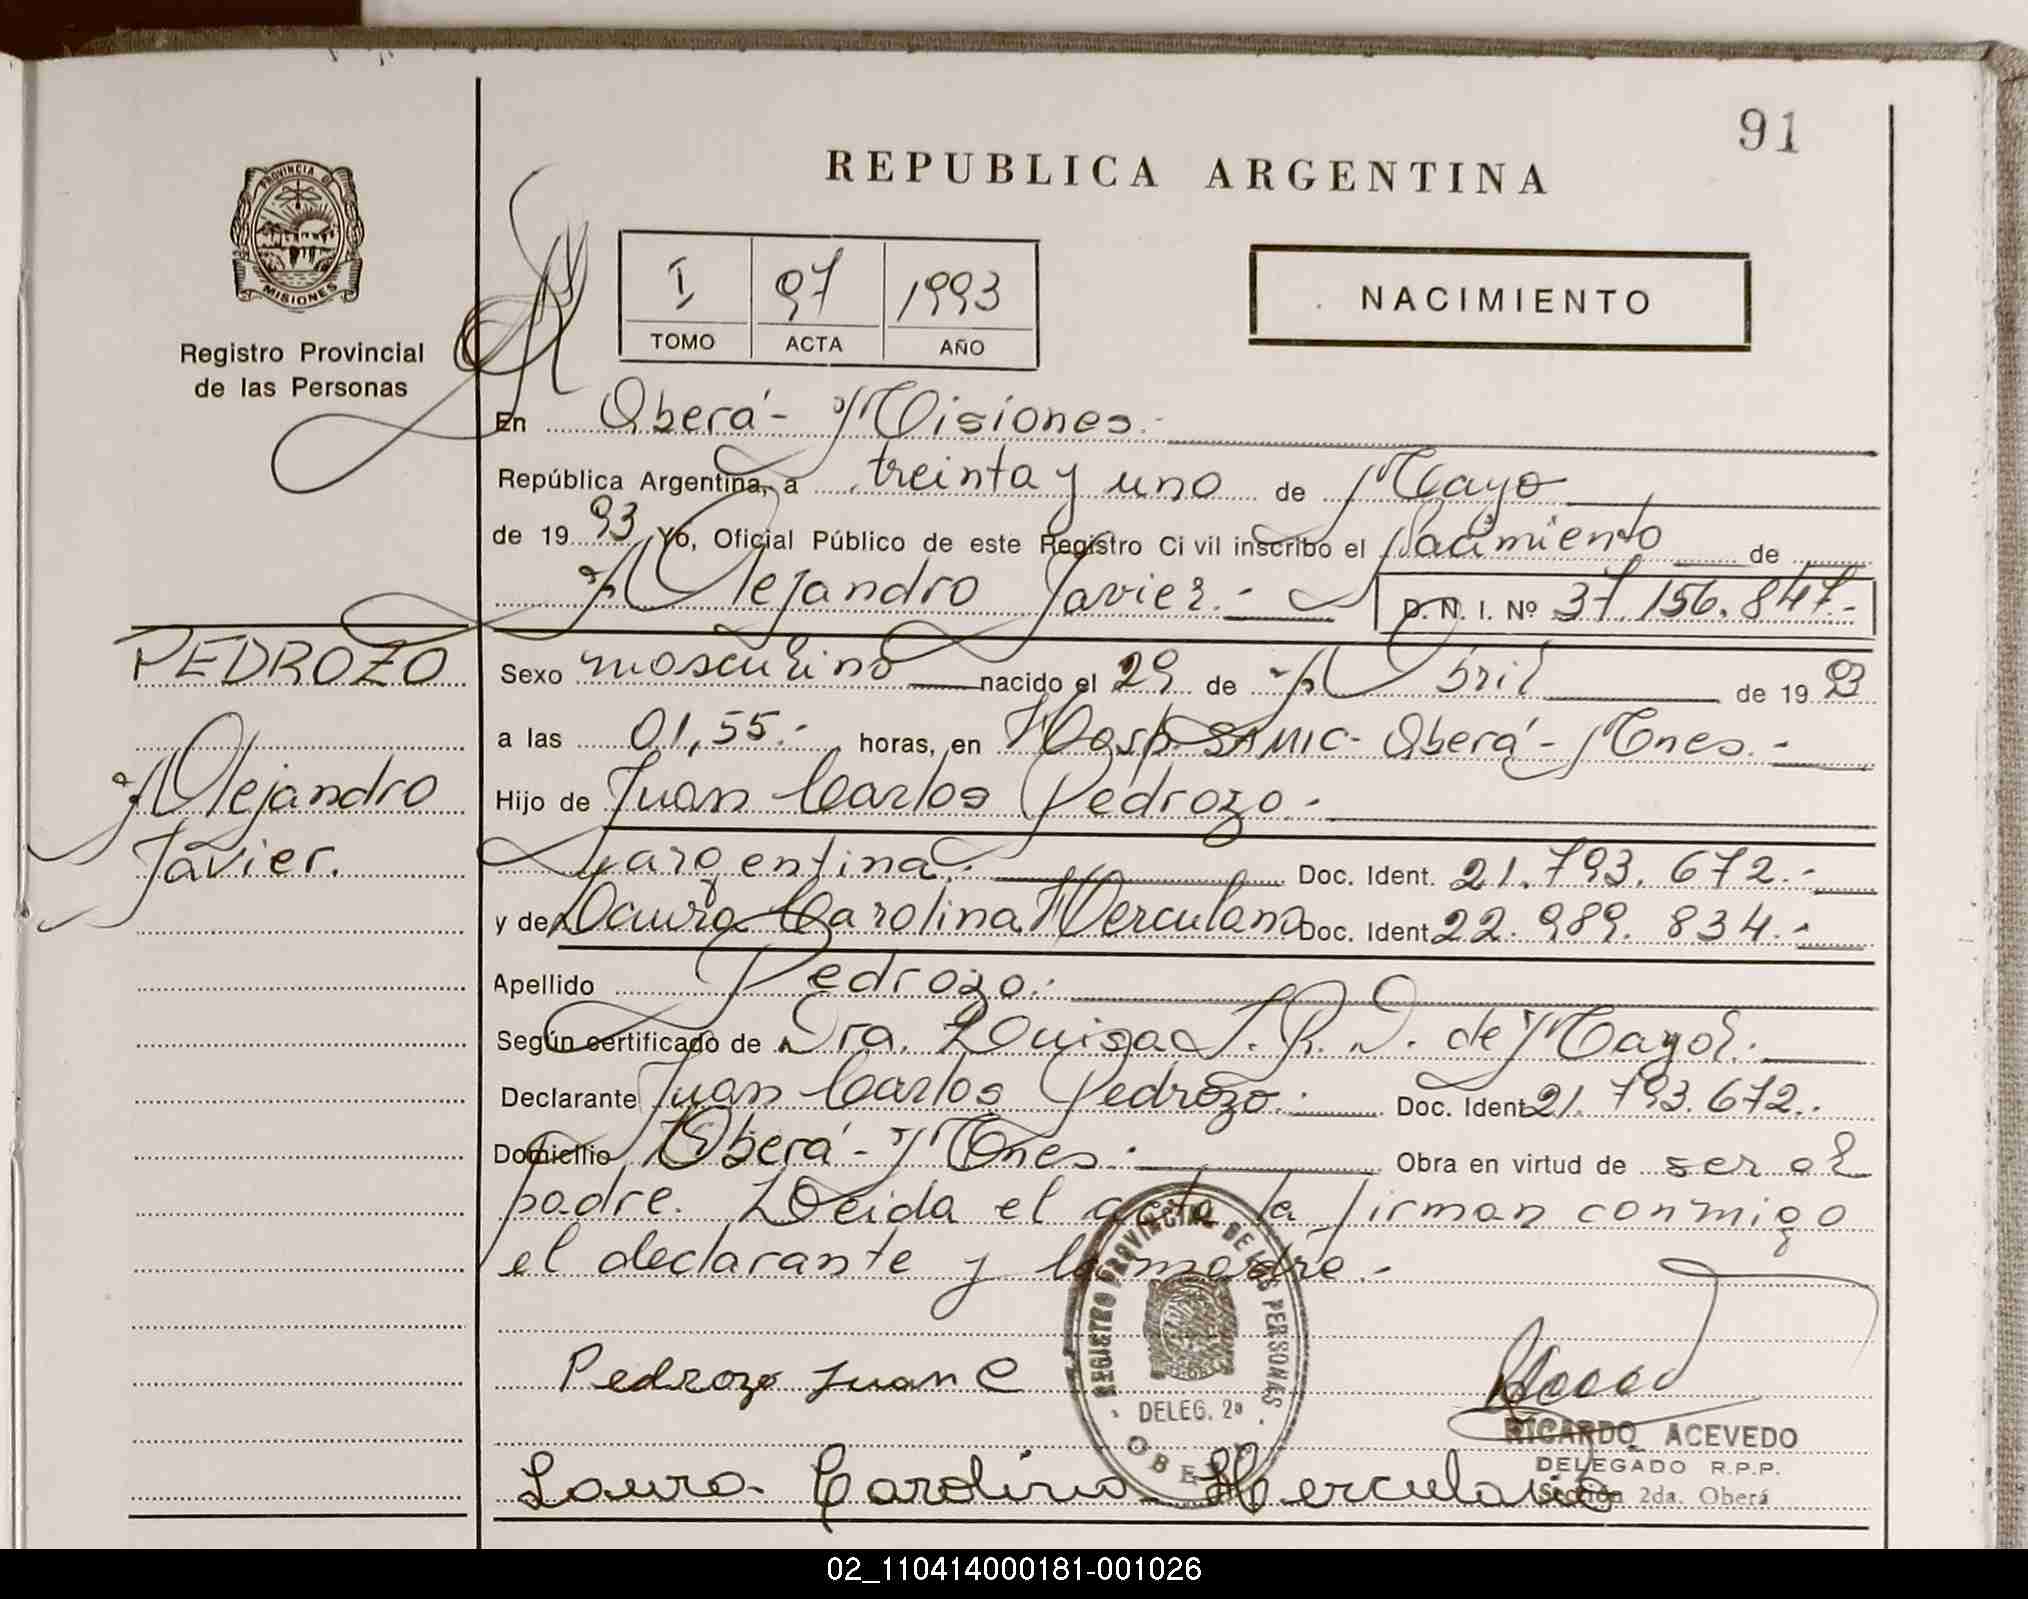 91
REPUBLICA ARGENTINA
PROVINCIA DE
MISIONES
Registro Provincial
de las Personas
I 97 1993
TOMO ACTA AÑO
NACIMIENTO
En Oberá - Misiones.-
República Argentina, a treinta y uno de Mayo
de 1993 Yo, Oficial Público de este Registro Civil inscribo el Nacimiento de
Alejandro Javier.- D. N. I. Nº 37.156.847.-
PEDROZO
Alejandro
Javier.
Sexo masculino nacido el 29 de Abril de 1993
a las 01,55.- horas, en Hosp. SAMIC - Oberá - Mnes.-
Hijo de Juan Carlos Pedrozo.-
argentina.- Doc. Ident. 21.793.672.-
y de Laura Carolina Herculano Doc. Ident. 22.989.834.-
Apellido Pedrozo.-
Según certificado de Dra. Luisa J. R. D. de Mayol.
Declarante Juan Carlos Pedrozo.- Doc. Ident. 21.793.672.-
Domicilio Oberá - Mnes.- Obra en virtud de ser el
padre. Leida el acta la firman conmigo
el declarante y la madre.-
REGISTRO PROVINCIAL DE LAS PERSONAS
DELEG. 2ª
OBERA
Pedrozo Juan C
RICARDO ACEVEDO
DELEGADO R.P.P.
Sección 2da. Oberá
Laura Carolina Herculano
02_110414000181-001026